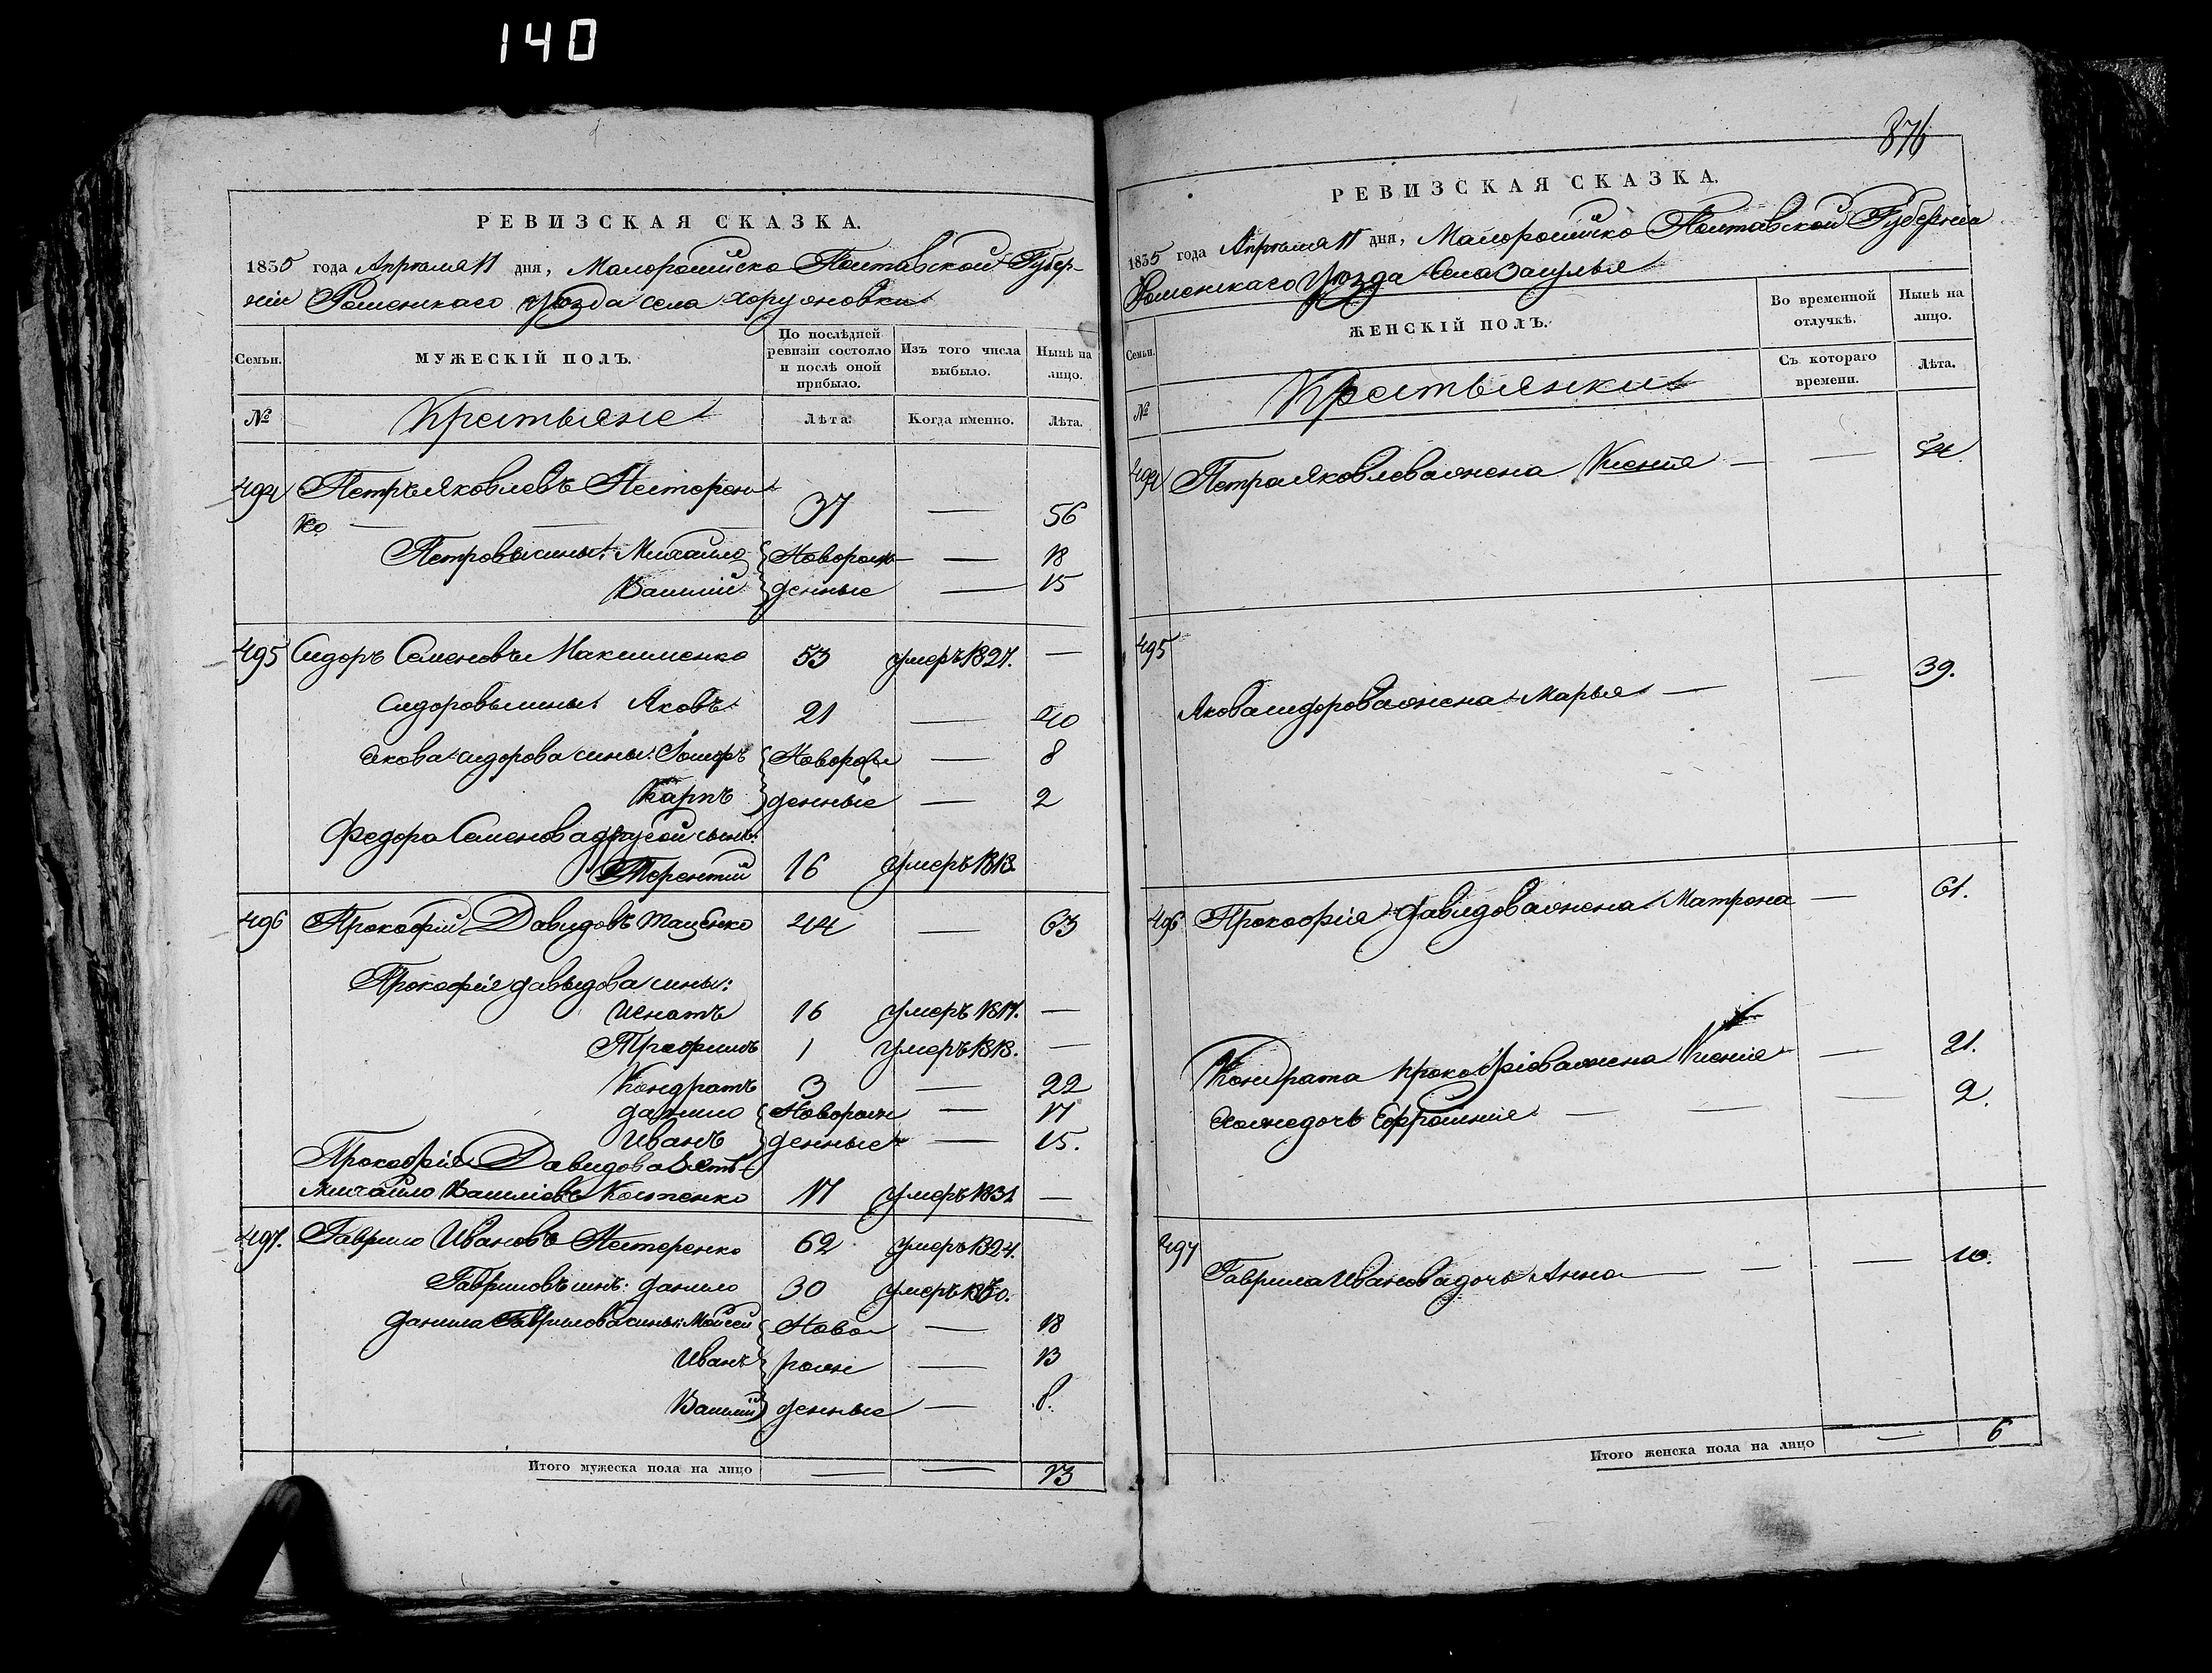 140
РЕВИЗСКАЯ СКАЗКА.
1835 года Апреля 11 дня, Малоросійско Полтавской Губер-
ніи Роменскаго уѣзда села хоружовки
Семьи. МУЖЕСКІЙ ПОЛЪ. По послѣдней ревизіи состояло и послѣ оной прибыло. Изъ того числа выбыло. Нынѣ на лицо.
№ Крестьяне Лѣта. Когда именно. Лѣта.
494 Петръ Яковлевъ Нестерен
ко — 37 — 56
Петровы сины: Михайло Новорож — 18
Василій денные — 15
495 Сидоръ Семеновъ Максименко 53 умеръ 1827. —
Сидоровы сины Яковъ 21 — 40
Якова Сидорова сины: Новорож — 8
Карпъ денные — 2
Федора Семенова другой сынъ
Терентій 16 умеръ 1813
496 Прокофій Давидовъ Тащенко 44 — 63
Прокофія давыдова сины:
Игнатъ 16 умеръ 1817. —
Трофимъ 1 умеръ 1818. —
Кондратъ 3 — 22
данило Новорож — 17
Иванъ денные — 15.
Прокофія Давидова зять
Михайло Василіевъ Костенко 17 умеръ 1831 —
497. Гаврило Ивановъ Нестеренко 62 умеръ 1824.
Гавриловъ синъ: данило 30 умеръ 1830.
данила Гаврилова сины: Мойсей Ново — 18
Иванъ рож — 13
Василій денные — 8.
Итого мужеска пола на лицо — — 13
876
РЕВИЗСКАЯ СКАЗКА.
1835 года Апреля 11 дня, Малоросійско Полтавской Губерніи
Роменскаго Уѣзда Села Засулья
Семьи. ЖЕНСКІЙ ПОЛЪ. Во временной отлучкѣ. Нынѣ на лицо.
№ Крестьянки Съ котораго времени. Лѣта.
494 Петра Яковлева жена Ксенія — —
495
Якова сидорова жена Марья — — 39.
496 Прокофія давидова жена Матрона — 61.
Кондрата прокофіова жена Ксенія — 21.
Его же дочь Ефросинія — — — 2.
497 Гаврила Иванова дочь Анна — — — 10.
Итого женска пола на лицо — 6